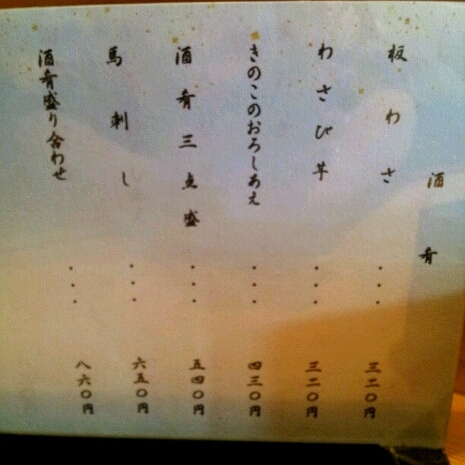 酒肴
板わさ・・・三二〇円
わさび芋・・・三二〇円
きのこのおろしあえ・・・四三〇円
酒肴三点盛・・・五四〇円
馬刺し・・・六五〇円
酒肴盛り合わせ・・・八六〇円